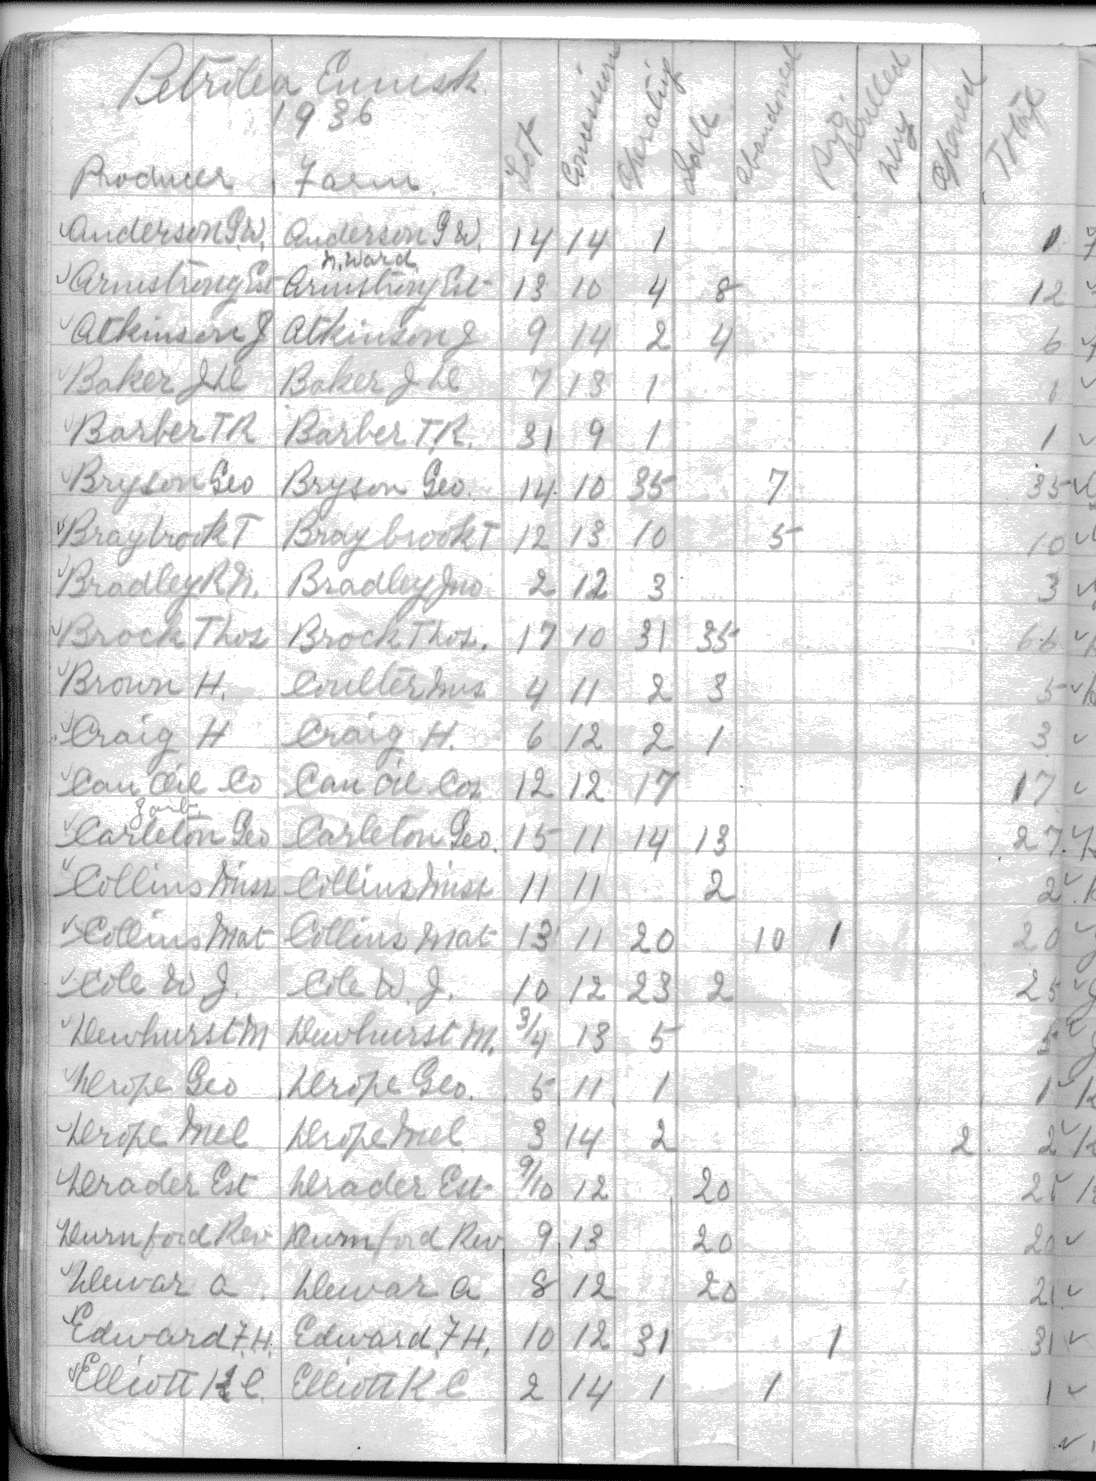 Petrolea Ennisk.
1936
Producer Farm. Lot Concession Operating Idle Abandoned Drilled Dry Opened Total
Anderson G.W. Anderson G W. 14 14 1 1
N. Ward
Armstrong Est Armstrong Est 13 10 4 8 12
Atkinson J Atkinson J 9 14 2 4 6
Baker J Baker J 7 13 1 1
Barber T R Barber T R. 31 9 1 1
Bryson Geo Bryson Geo. 14 10 35 7 35
Braybrook T Braybrook T 12 13 10 5 10
Bradley R N. Bradley Jno 2 12 3 3
Brock Thos Brock Thos. 17 10 31 35 66
Brown H. Coulter Mrs 4 11 2 3 5
Craig H Craig H. 6 12 2 1 3
Can Oil Co Can Oil Co. 12 12 17 17
Carleton Geo Carleton Geo. 15 11 14 13 27
Collins Miss Collins Miss 11 11 2 2
Collins Mat Collins Mat 13 11 20 10 1 20
Cole W J. Cole W. J. 10 12 23 2 25
Dewhurst M Dewhurst M. 3/4 13 5 5
Drope Geo Drope Geo. 5 11 1 1
Drope Mel Drope Mel 3 14 2 2 2
Drader Est Drader Est 9/10 12 20
Durnford Rev Durnford Rev 9 13 20 20
Dewar A. Dewar A 8 12 20
Edward F.H. Edward F H. 10 12 31 1 31
Elliott K C. Elliott K C 2 14 1 1 1